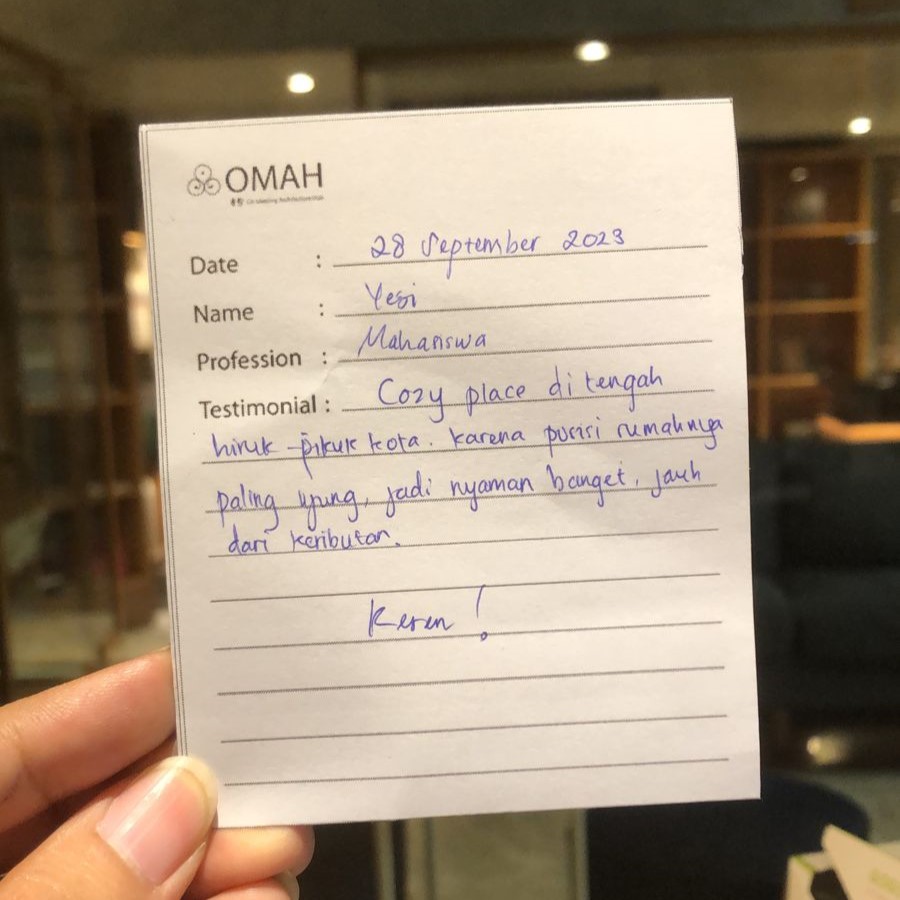 OMAH
Date : 28 September 2023
Name : Yesi
Profession : Mahasiswa
Testimonial : Cozy place di tengah
hiruk-pikuk kota. karena posisi rumahnya
paling ujung, jadi nyaman banget, jauh
dari keributan.
Keren!